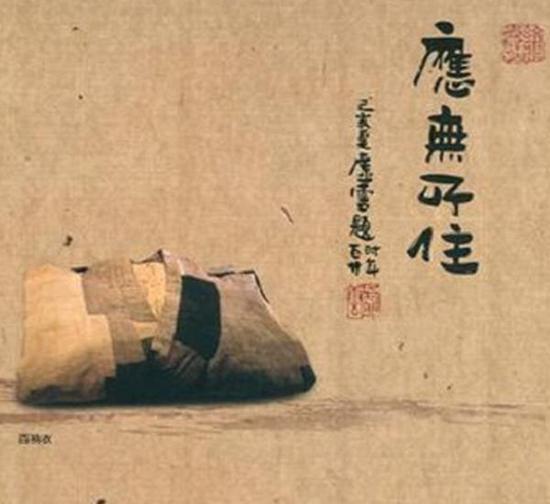 應無所住
己亥夏虛雲題
時年
百廿
百衲衣